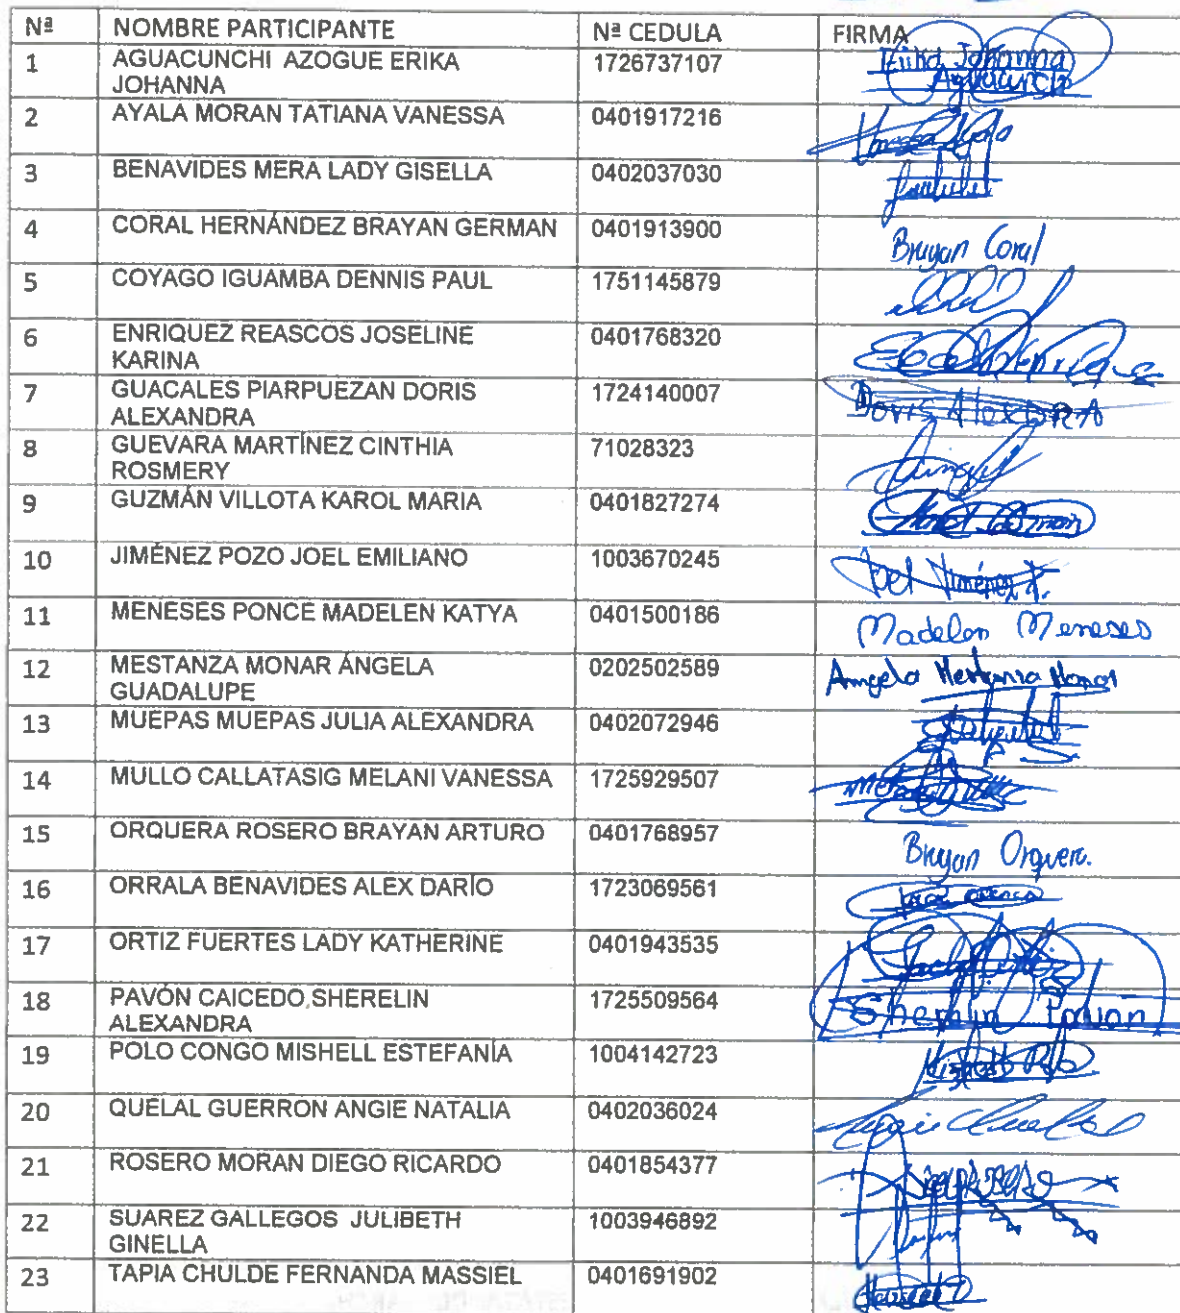 Nª NOMBRE PARTICIPANTE Nª CEDULA FIRMA
1 AGUACUNCHI AZOGUE ERIKA 1726737107 Erika Johanna
JOHANNA Aguacunchi
2 AYALA MORAN TATIANA VANESSA 0401917216
3 BENAVIDES MERA LADY GISELLA 0402037030
4 CORAL HERNÁNDEZ BRAYAN GERMAN 0401913900 Brayan Coral
5 COYAGO IGUAMBA DENNIS PAUL 1751145879
6 ENRIQUEZ REASCOS JOSELINE 0401768320
KARINA
7 GUACALES PIARPUEZAN DORIS 1724140007 Doris
ALEXANDRA
8 GUEVARA MARTÍNEZ CINTHIA 71028323
ROSMERY
9 GUZMÁN VILLOTA KAROL MARIA 0401827274
10 JIMÉNEZ POZO JOEL EMILIANO 1003670245 Joel Jiménez P.
11 MENESES PONCE MADELEN KATYA 0401500186 Madelen Meneses
12 MESTANZA MONAR ÁNGELA 0202502589 Angela Mestanza Monar
GUADALUPE
13 MUEPAS MUEPAS JULIA ALEXANDRA 0402072946
14 MULLO CALLATASIG MELANI VANESSA 1725929507
15 ORQUERA ROSERO BRAYAN ARTURO 0401768957 Brayan Orquera.
16 ORRALA BENAVIDES ALEX DARÍO 1723069561
17 ORTIZ FUERTES LADY KATHERINE 0401943535
18 PAVÓN CAICEDO SHERELIN 1725509564 Sherelin Pavón
ALEXANDRA
19 POLO CONGO MISHELL ESTEFANÍA 1004142723 Mishell Polo
20 QUELAL GUERRON ANGIE NATALIA 0402036024 Angie Quelal
21 ROSERO MORAN DIEGO RICARDO 0401854377
22 SUAREZ GALLEGOS JULIBETH 1003946892
GINELLA
23 TAPIA CHULDE FERNANDA MASSIEL 0401691902